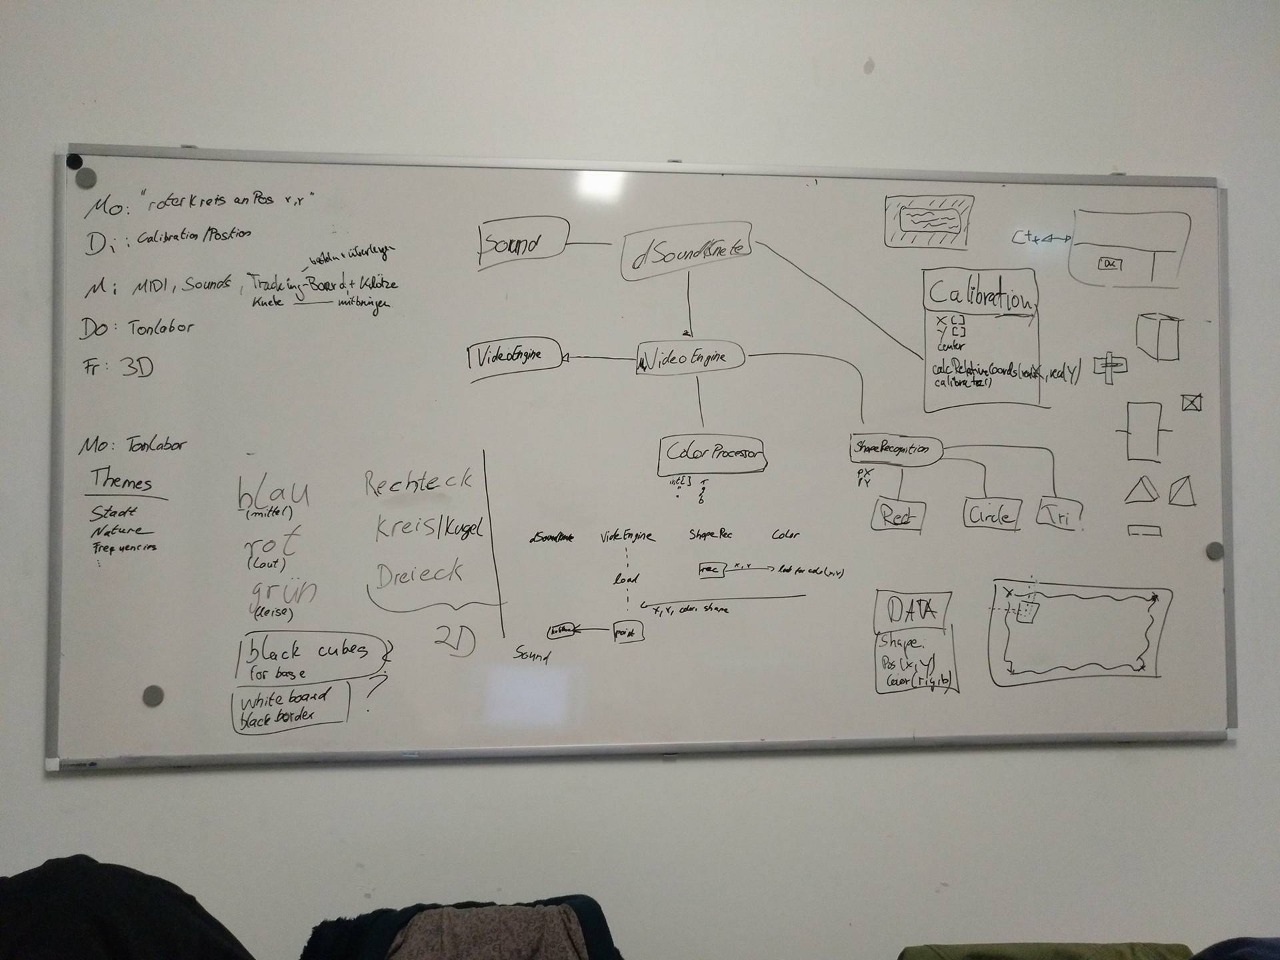 Mo: "roter Kreis an Pos x,y"
Di: Calibration/Position
Mi: MIDI, Sounds, Tracking-Board, + Klötze
basteln + überlegen
Knete mitbringen
Do: Tonlabor
Fr: 3D
Mo: Tonlabor
Themes
Stadt
Nature
Frequencies
blau
(mittel)
rot
(laut)
grün
(leise)
black cubes
for base
white board
black border
?
Rechteck
Kreis/Kugel
Dreieck
2D
Sound
dSoundKnete
VideoEngine
VideoEngine
Color Processor
int[]
r
g
b
ShapeRecognition
PX
PY
Rect
Circle
Tri
Calibration
X []
Y []
center
calcRelativeCoords(realX, realY)
calibrate()
dSoundKnete VideoEngine ShapeRec Color
load
rec x,y look for color(x,y)
x, y, color, shape
point
Sound
DATA
Shape
Pos(x,y)
Color(r,g,b)
OK